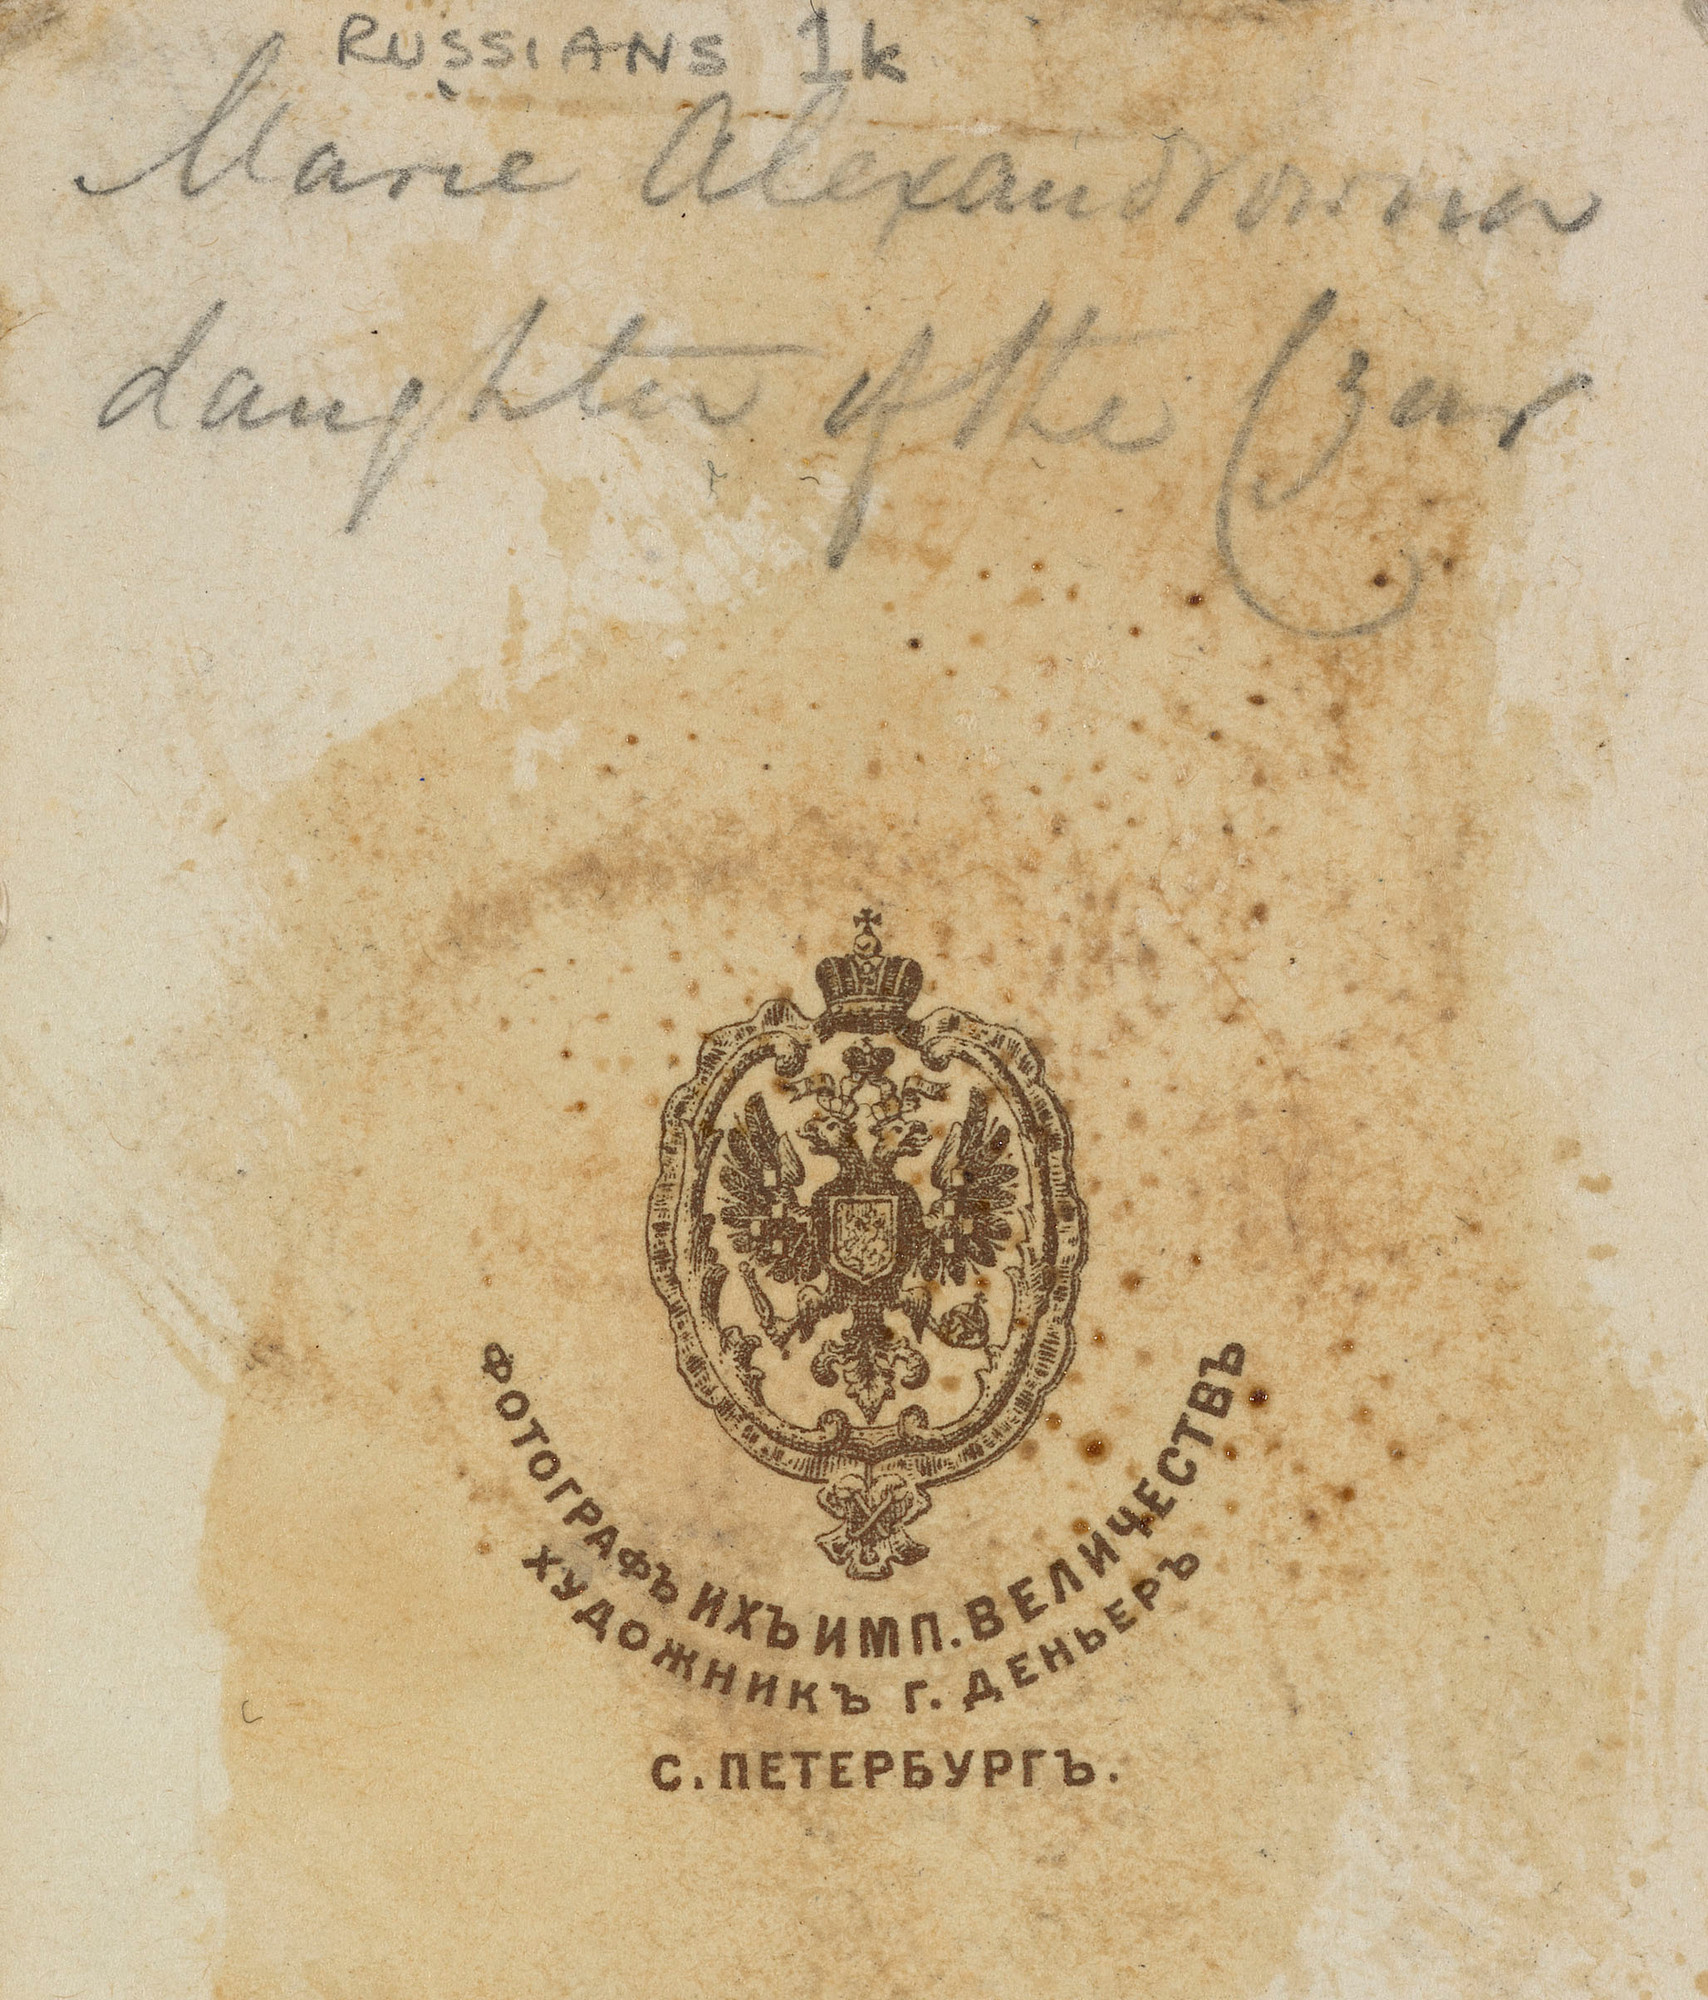 RUSSIANS 1k
Marie Alexandrovna
daughter of the Czar
ФОТОГРАФЪ ИХЪ ИМП. ВЕЛИЧЕСТВЪ
ХУДОЖНИКЪ Г. ДЕНЬЕРЪ
С. ПЕТЕРБУРГЪ.